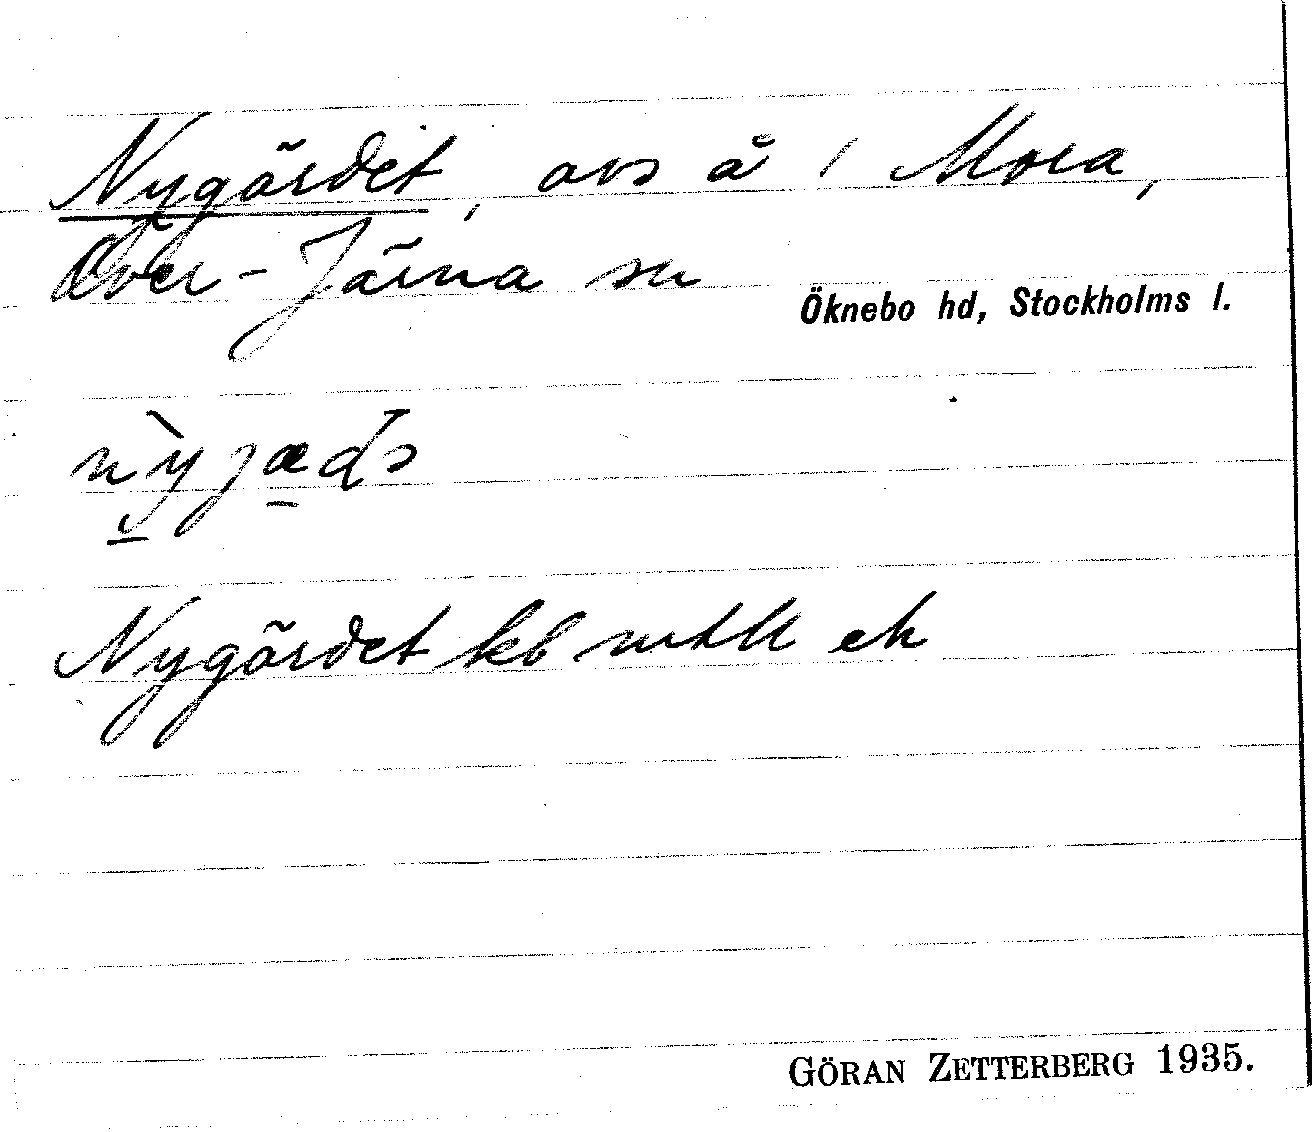 Nygärdet, avs å / Mora,
Över-Järna sn
Öknebo hd, Stockholms l.
Nygärdet kb mtll ek
GÖRAN ZETTERBERG 1935.